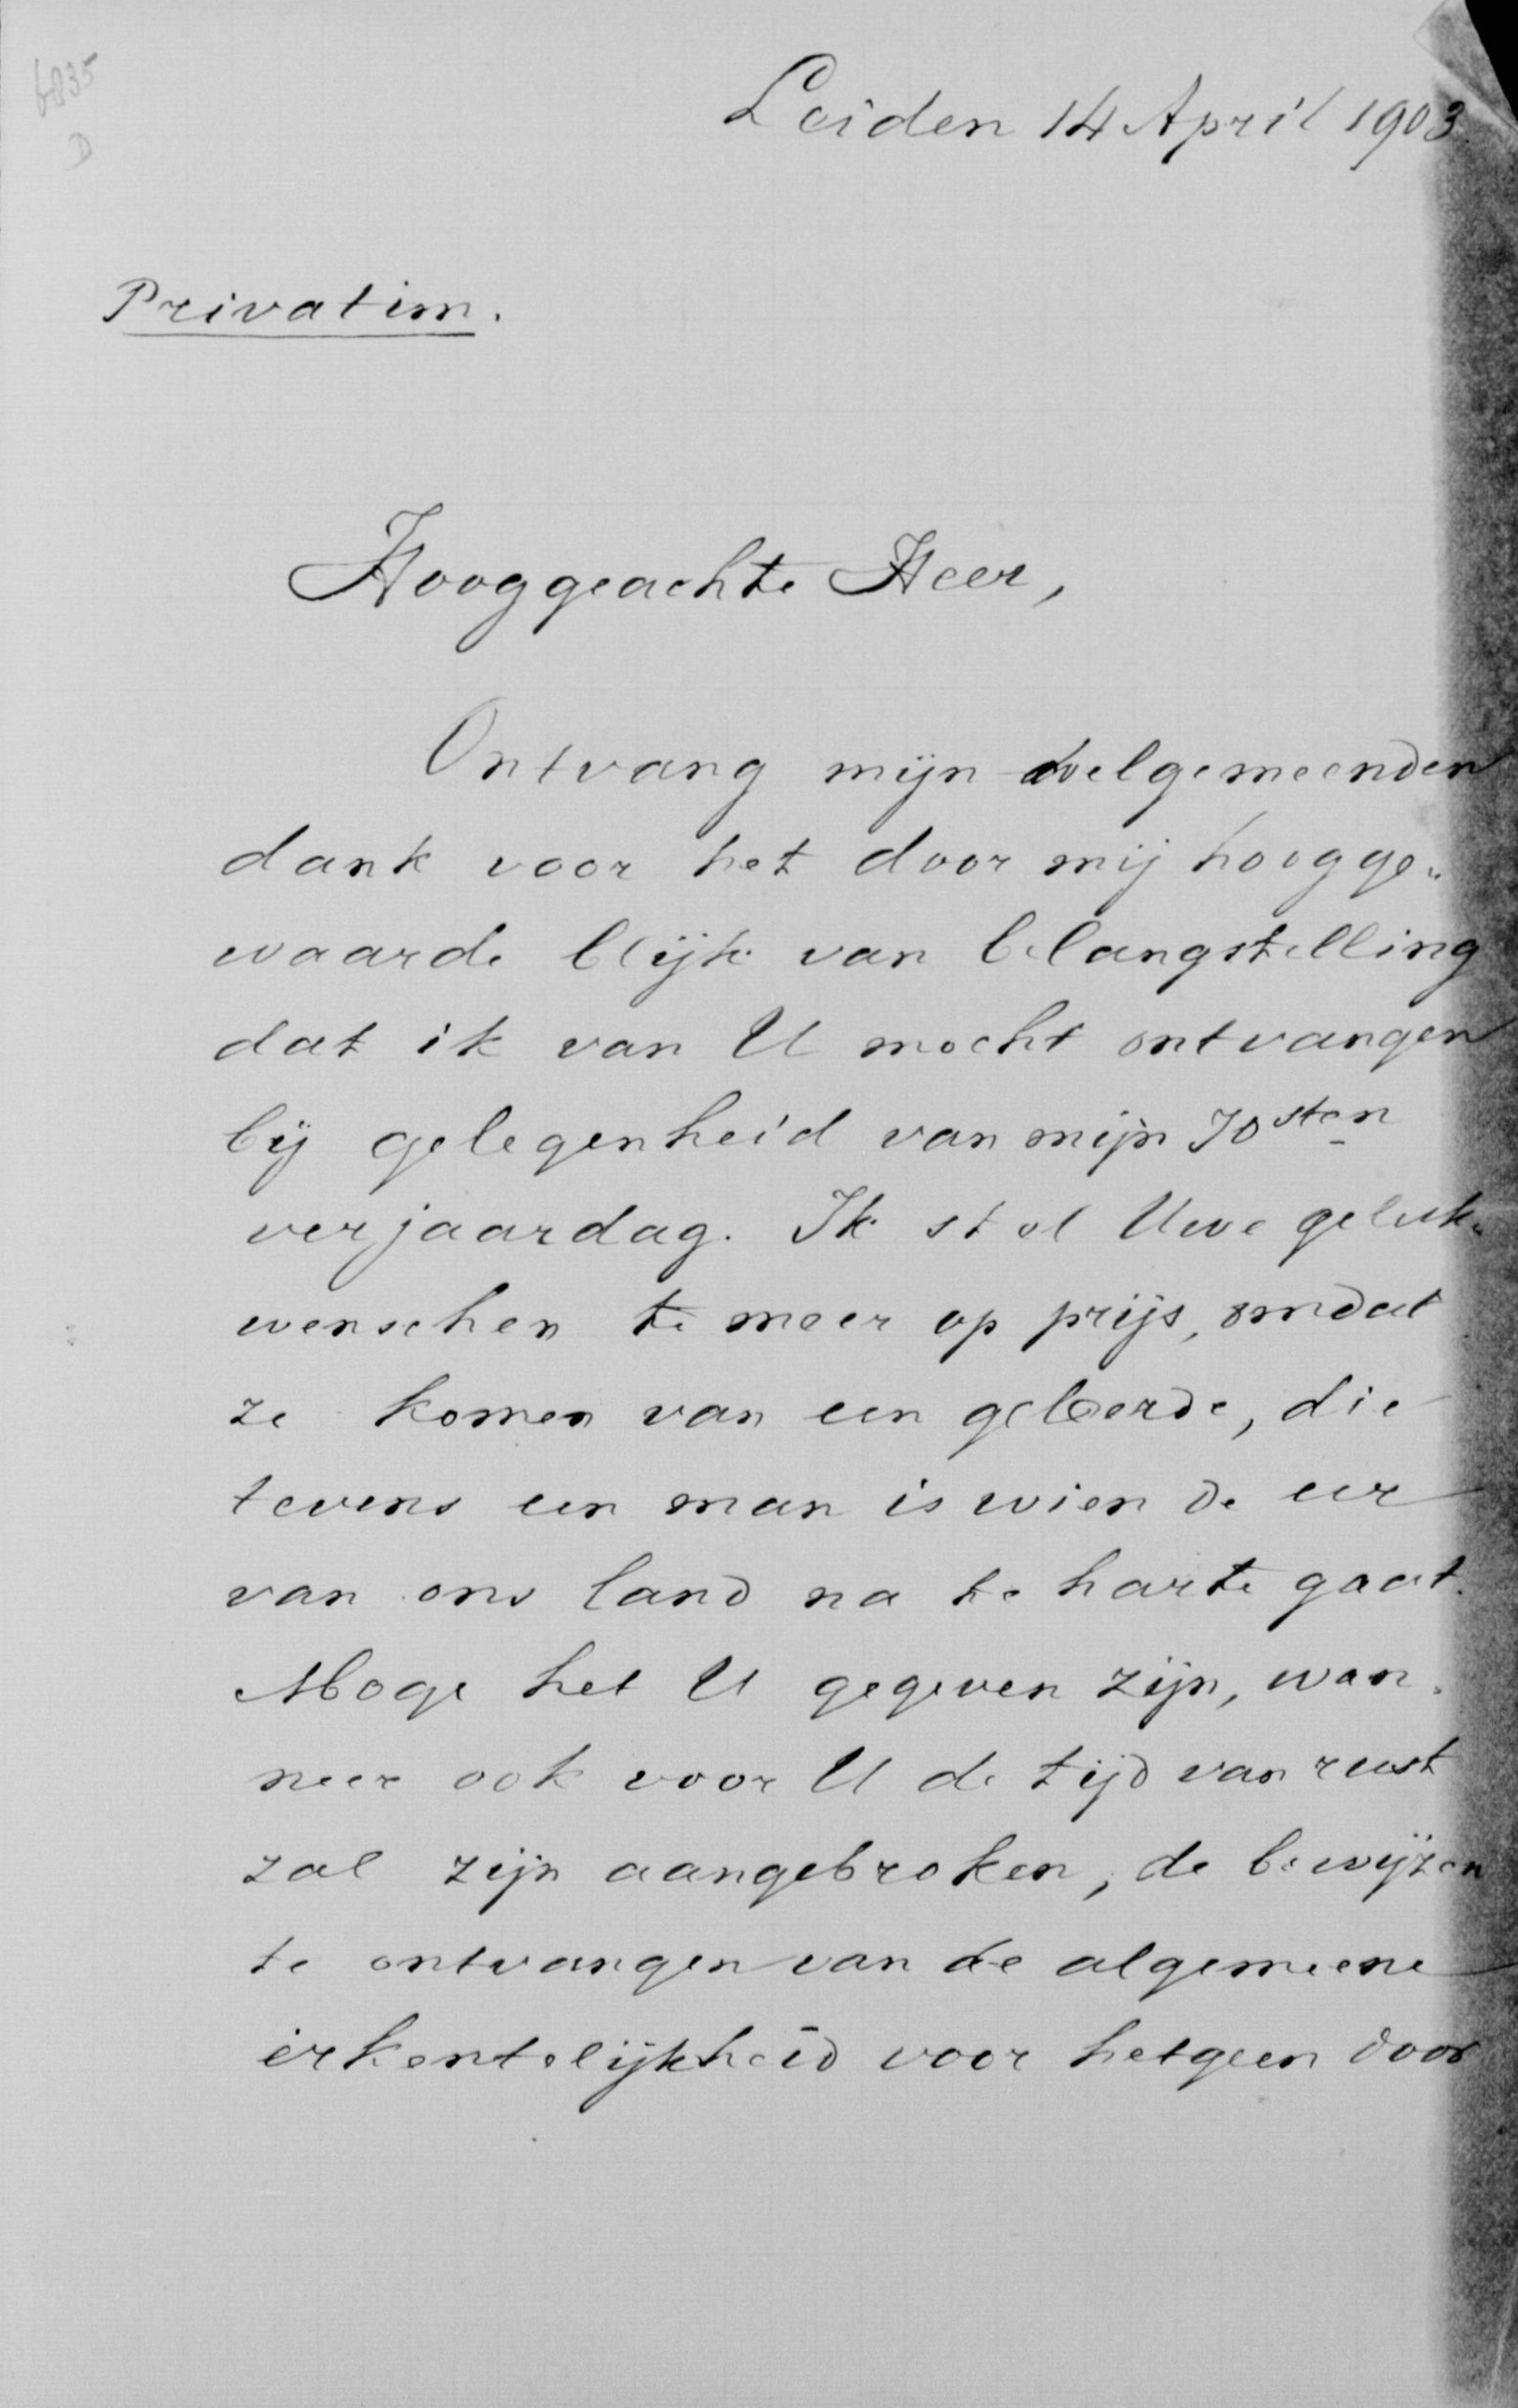 6835
D
Leiden 14 April 1903.
Privatim.
Hooggeachte Heer,
Ontvang mijn welgemeenden
dank voor het door mij hoogge-
waarde blijk van belangstelling
dat ik van U mocht ontvangen
bij gelegenheid van mijn 70sten
verjaardag. Ik stel Uwe geluk-
wenschen te meer op prijs, omdat
ze komen van een geleerde, die
tevens een man is wien de eer
van ons land na te harte gaat.
Moge het U gegeven zijn, wan-
neer ook voor U de tijd van rust
zal zijn aangebroken, de bewijzen
te ontvangen van de algemeene
erkentelijkheid voor hetgeen door